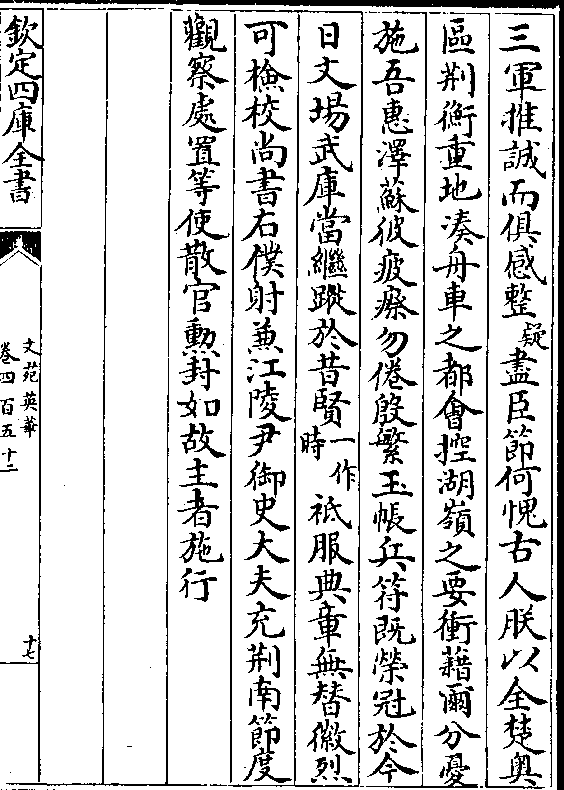 三軍推誠而俱感整疑盡臣節何愧古人朕以全楚奥
區荆衡重地凑舟車之都㑹控湖嶺之要衝藉爾分憂
施吾惠澤蘇彼疲瘵勿倦殷繁玉帳兵符既榮冠於今
日文場武庫當繼蹤於昔賢一作時祗服典章無替徽烈
可檢校尚書右僕射兼江陵尹御史大夫充荆南節度
觀察處置等使散官勲封如故主者施行
欽定四庫全書
文苑英華
卷四百五十二
十七